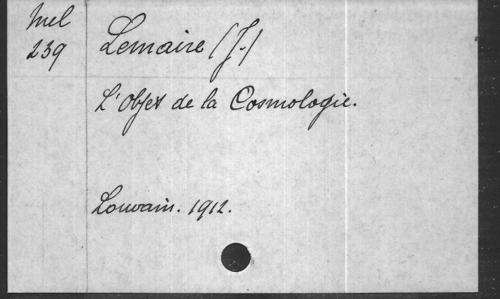 Mel
239
Lemaire (J.)
L'Objet de la Cosmologie.
Louvain. 1912.